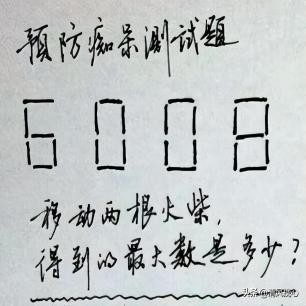 预防痴呆测试题
6008
移动两根火柴，
得到的最大数是多少？
头条 @清风悦心